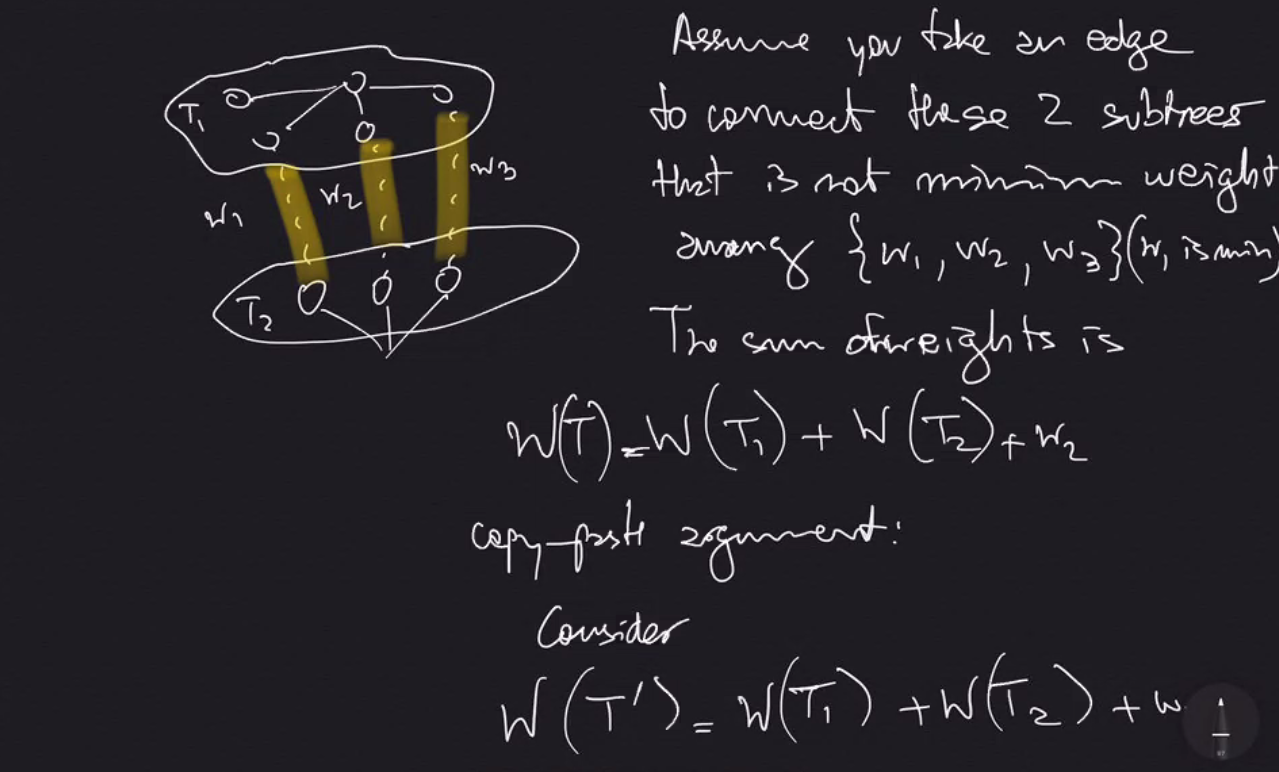 Assume you take an edge
to connect these 2 subtrees
that is not minimum weight
among {w₁, w₂, w₃}(w₁ is min)
The sum of weights is
W(T)=W(T₁) + W(T₂)+w₂
copy-paste argument:
Consider
W(T')= W(T₁) +W(T₂) + w
T₁
w₁
w₂
w₃
T₂